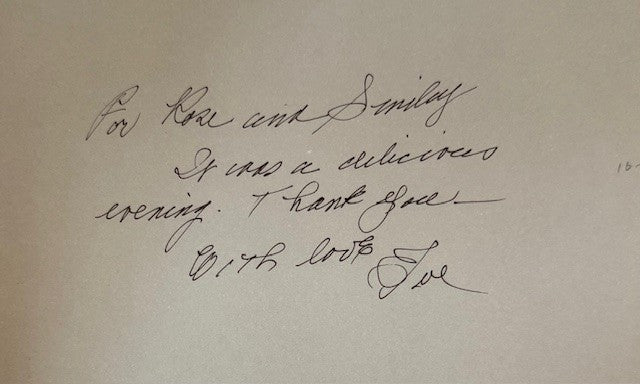 For Rose and Smiley
It was a delicious
evening. Thank you —
With love Joe